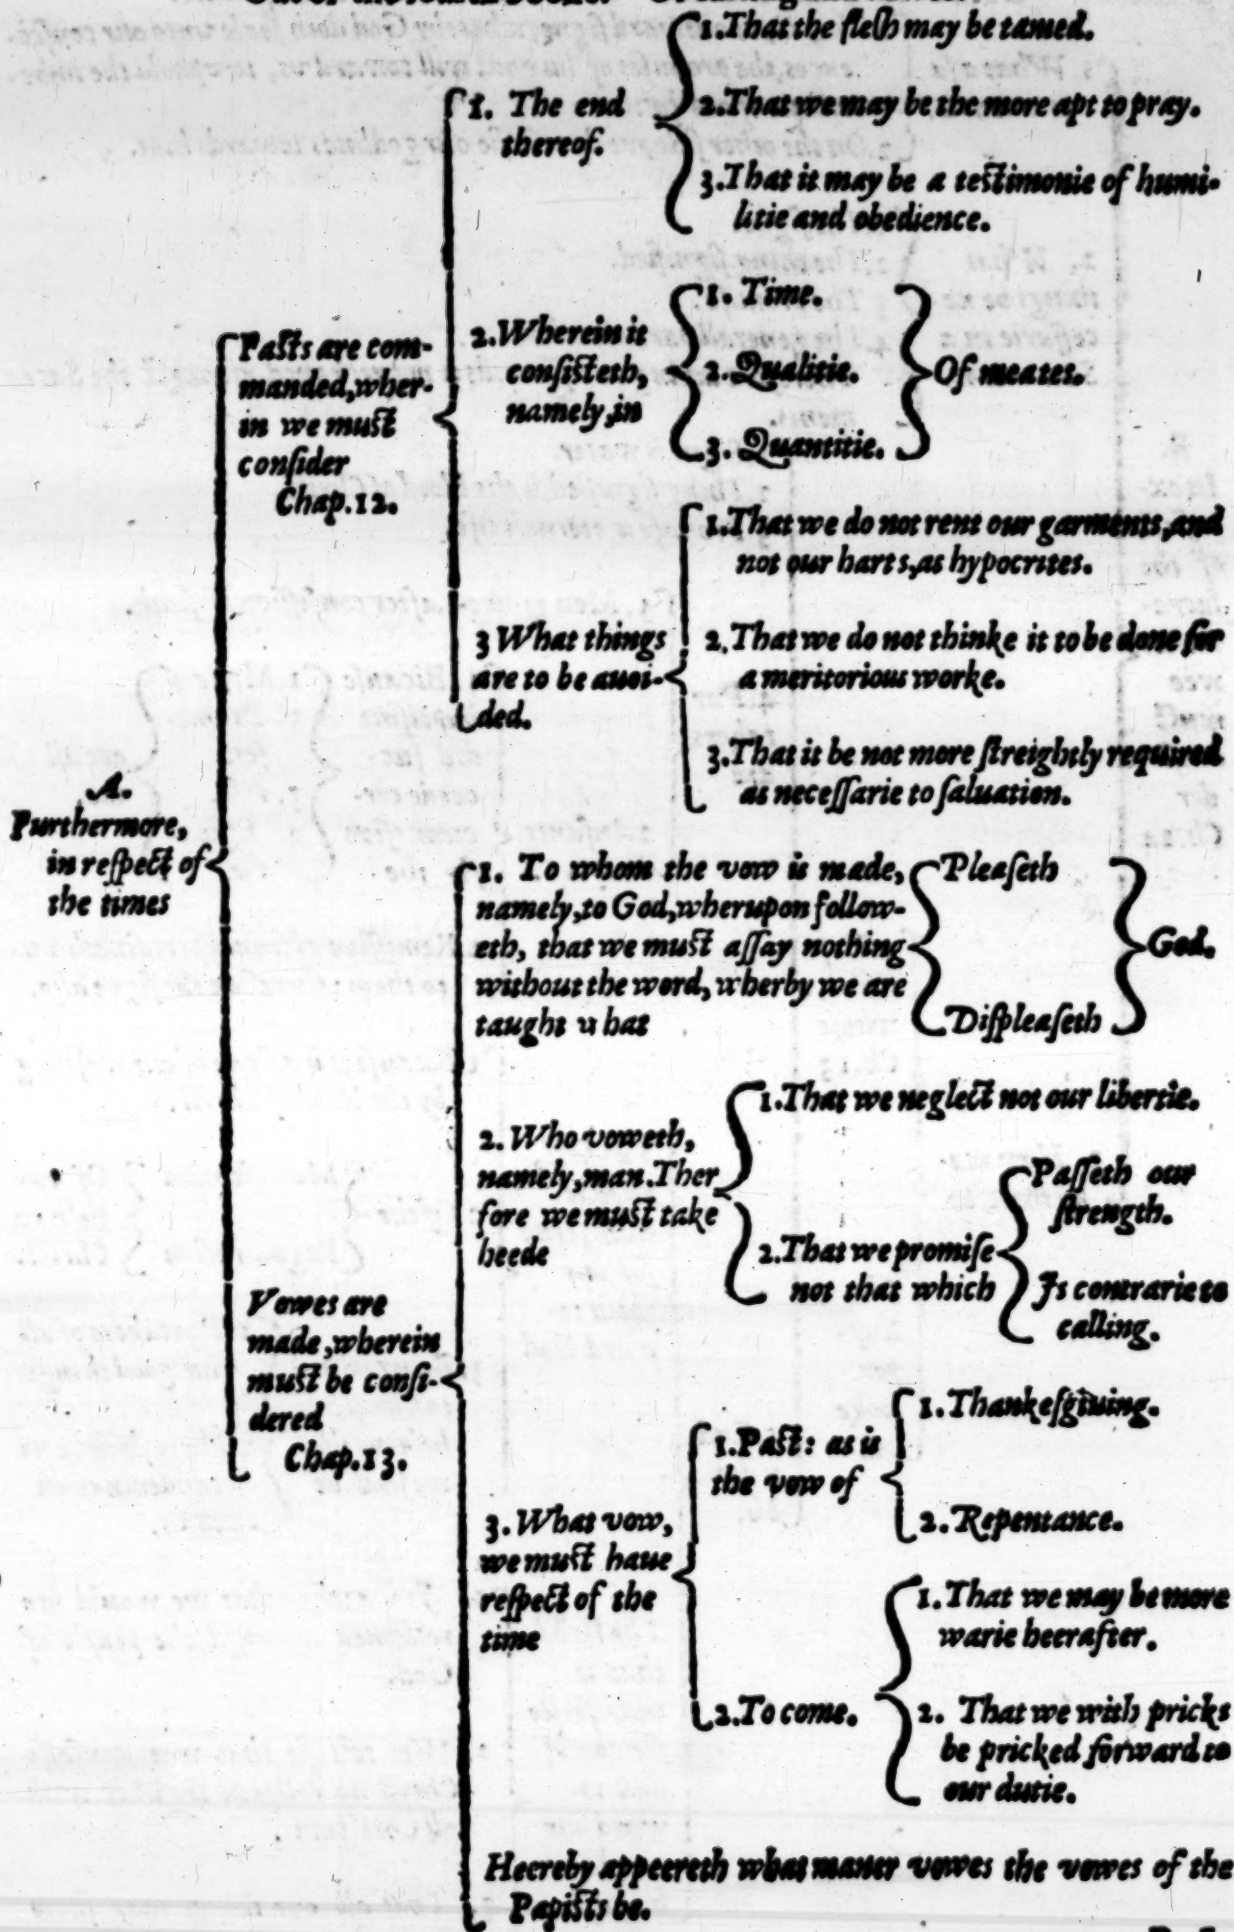 A.
Furthermore,
in reſpect of
the times
Faſts are com-
manded, wher-
in we muſt
conſider
Chap.12.
1. The end
thereof.
1. That the fleſh may be tamed.
2. That we may be the more apt to pray.
3. That it may be a teſtimonie of humi-
litie and obedience.
2. Wherein it
conſiſteth,
namely, in
1. Time.
2. Qualitie.
3. Quantitie.
Of meates.
3 What things
are to be auoi-
ded.
1. That we do not rent our garments, and
not our harts, as hypocrites.
2. That we do not thinke it to be done for
a meritorious worke.
3. That it be not more ſtreightly required
as neceſſarie to ſaluation.
Vowes are
made, wherein
muſt be conſi-
dered
Chap.13.
1. To whom the vow is made,
namely, to God, wherupon follow-
eth, that we muſt aſſay nothing
without the word, wherby we are
taught what
Pleaſeth
Diſpleaſeth
God.
2. Who voweth,
namely, man. Ther
fore we muſt take
heede
1. That we neglect not our libertie.
2. That we promiſe
not that which
Paſſeth our
ſtrength.
Is contrarie to
calling.
3. What vow,
we muſt haue
reſpect of the
time
1. Paſt: as is
the vow of
1. Thankeſgiuing.
2. Repentance.
2. To come.
1. That we may be more
warie heerafter.
2. That we with pricks
be pricked forward to
our dutie.
Heereby appeereth what maner vowes the vowes of the
Papiſts be.